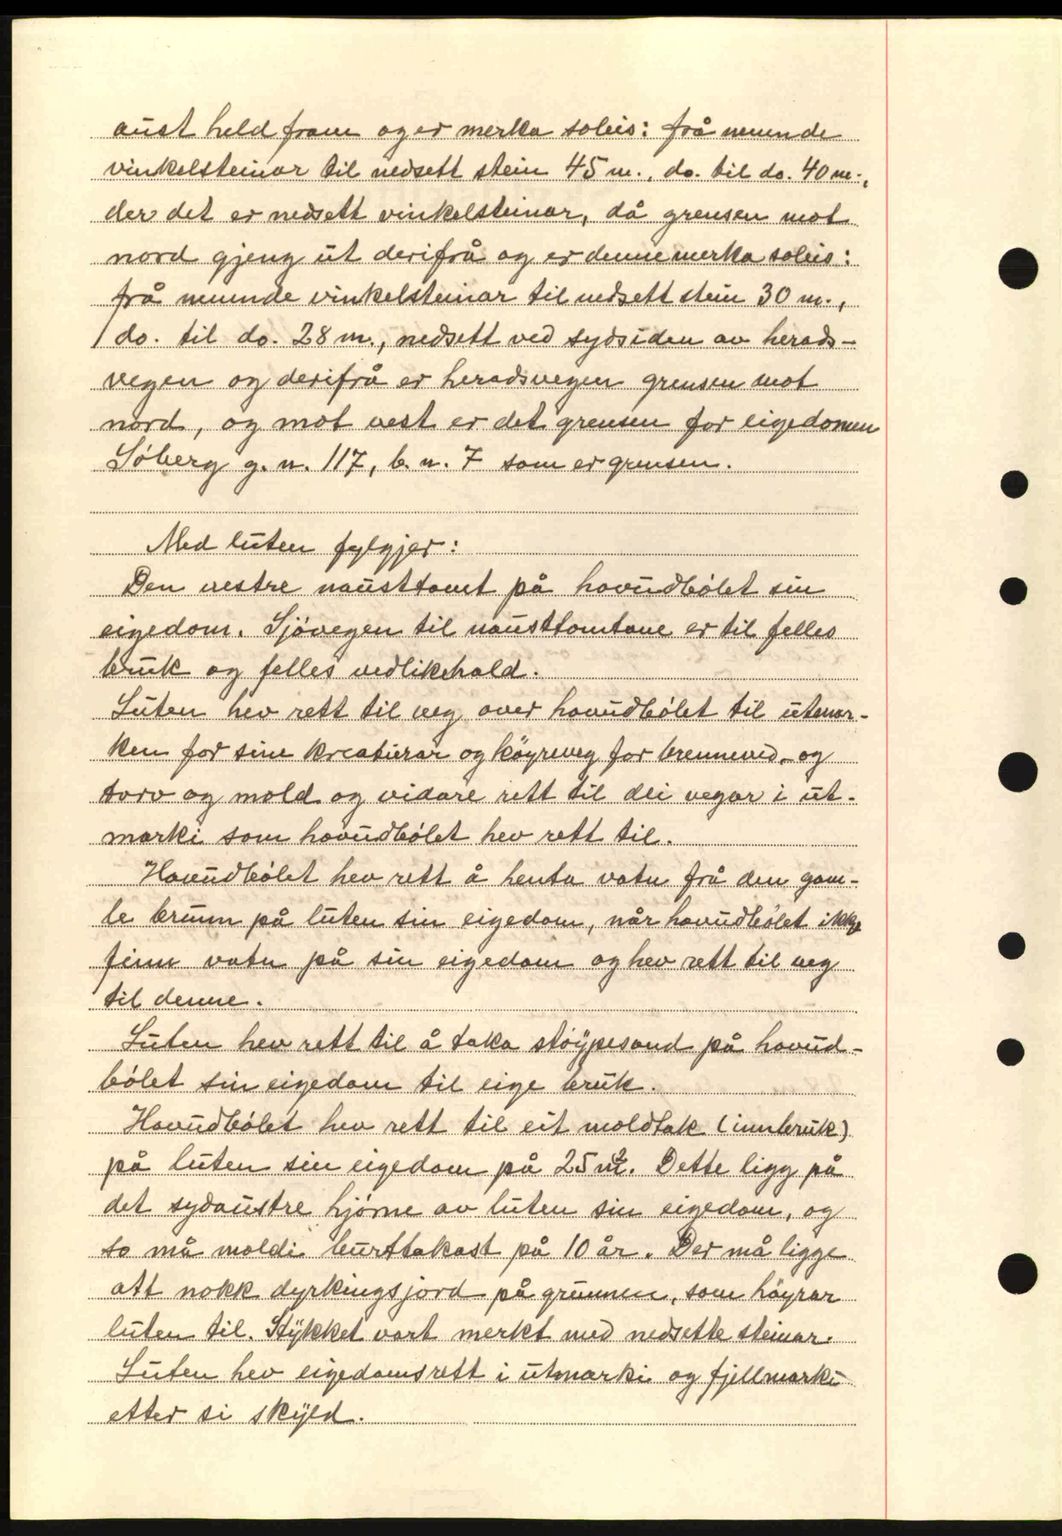 aust held fram og er merka soleis: frå nemnde
vinkelsteinar til nedsett stein 45 m., do. til do. 40 m.,
der det er nedsett vinkelsteinar, då grensen mot
nord gjeng ut derifrå og er denne merka soleis:
frå nemnde vinkelsteinar til nedsett stein 30 m.,
do. til do. 28 m., nedsett ved sydsiden av herads-
vegen og derifrå er heradsvegen grensen mot
nord, og mot vest er det grensen for eigedomen
Söberg g. n. 117, b. n. 7 som er grensen.
Med luten fylgjer:
Den vestre nausttomt på hovudbölet sin
eigedom. Sjövegen til nausttomtane er til felles
bruk og felles vedlikehold.
Luten hev rett til veg over hovudbölet til utmar-
ken for sine kreaturar og köyreveg for brenneved- og
torv og mold og vidare rett til dei vegar i ut-
marki som hovudbölet hev rett til.
Hovudbölet hev rett å henta vatn frå den gam-
le brunn på luten sin eigedom, når hovudbölet ikkje
finn vatn på sin eigedom og hev rett til veg
til denne.
Luten hev rett til å taka stöypesand på hovud-
bölet sin eigedom til eige bruk.
Hovudbölet hev rett til eit moldtak (innbruk)
på luten sin eigedom på 25 m². Dette ligg på
det sydaustre hjörne av luten sin eigedom, og
so må moldi burttakast på 10 år. Der må ligge
att nokk dyrkingsjord på grunnen, som höyrar
luten til. Stykket vart merkt med nedsette steinar.
Luten hev eigedomsrett i utmarki og fjellmarki
etter si skyld.